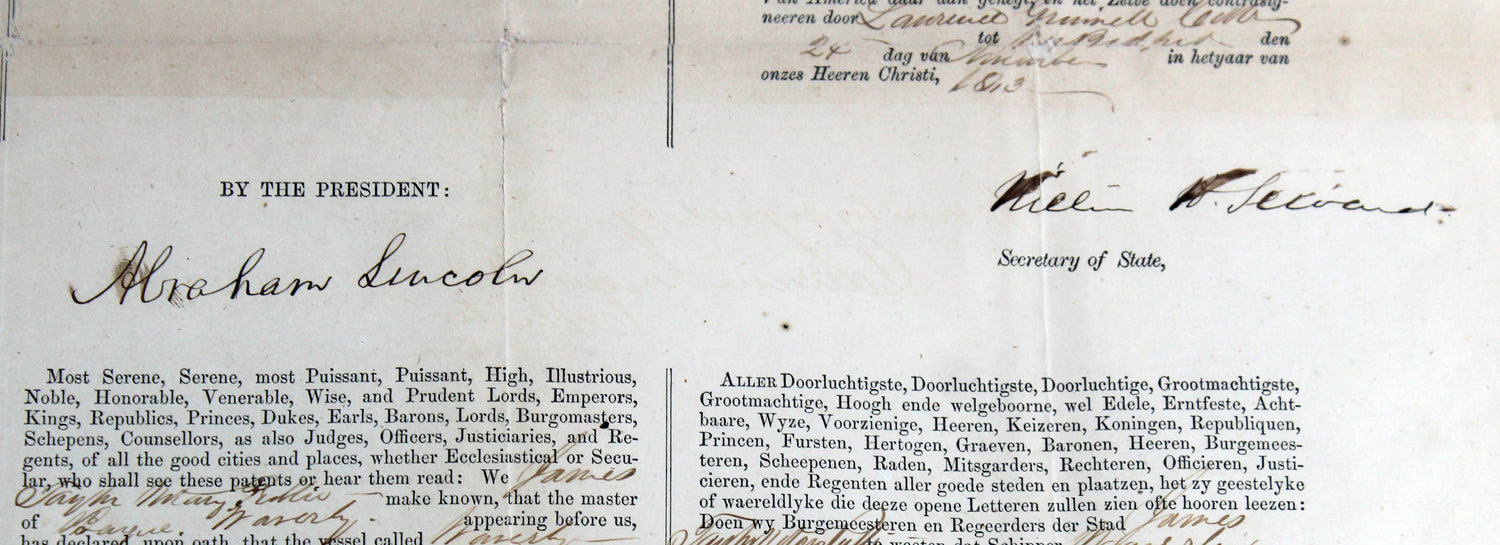 neeren door Laurence Grinnell
24 tot den
dag van in hetyaar van
onzes Heeren Christi,
BY THE PRESIDENT:
Abraham Lincoln
William H. Seward
Secretary of State,
Most Serene, Serene, most Puissant, Puissant, High, Illustrious,
Noble, Honorable, Venerable, Wise, and Prudent Lords, Emperors,
Kings, Republics, Princes, Dukes, Earls, Barons, Lords, Burgomasters,
Schepens, Counsellors, as also Judges, Officers, Justiciaries, and Re-
gents, of all the good cities and places, whether Ecclesiastical or Secu-
lar, who shall see these patents or hear them read: We James
Taylor make known, that the master
of Waverly. appearing before us,
has declared, upon oath, that the vessel called Waverly
ALLER Doorluchtigste, Doorluchtigste, Doorluchtige, Grootmachtigste,
Grootmachtige, Hoogh ende welgeboorne, wel Edele, Erntfeste, Acht-
baare, Wyze, Voorzienige, Heeren, Keizeren, Koningen, Republiquen,
Princen, Fursten, Hertogen, Graeven, Baronen, Heeren, Burgemees-
teren, Scheepenen, Raden, Mitsgarders, Rechteren, Officieren, Justi-
cieren, ende Regenten aller goede steden en plaatzen, het zy geestelyke
of waereldlyke die deeze opene Letteren zullen zien ofte hooren leezen:
Doen wy Burgemeesteren en Regeerders der Stad James
te weeten dat Schipper